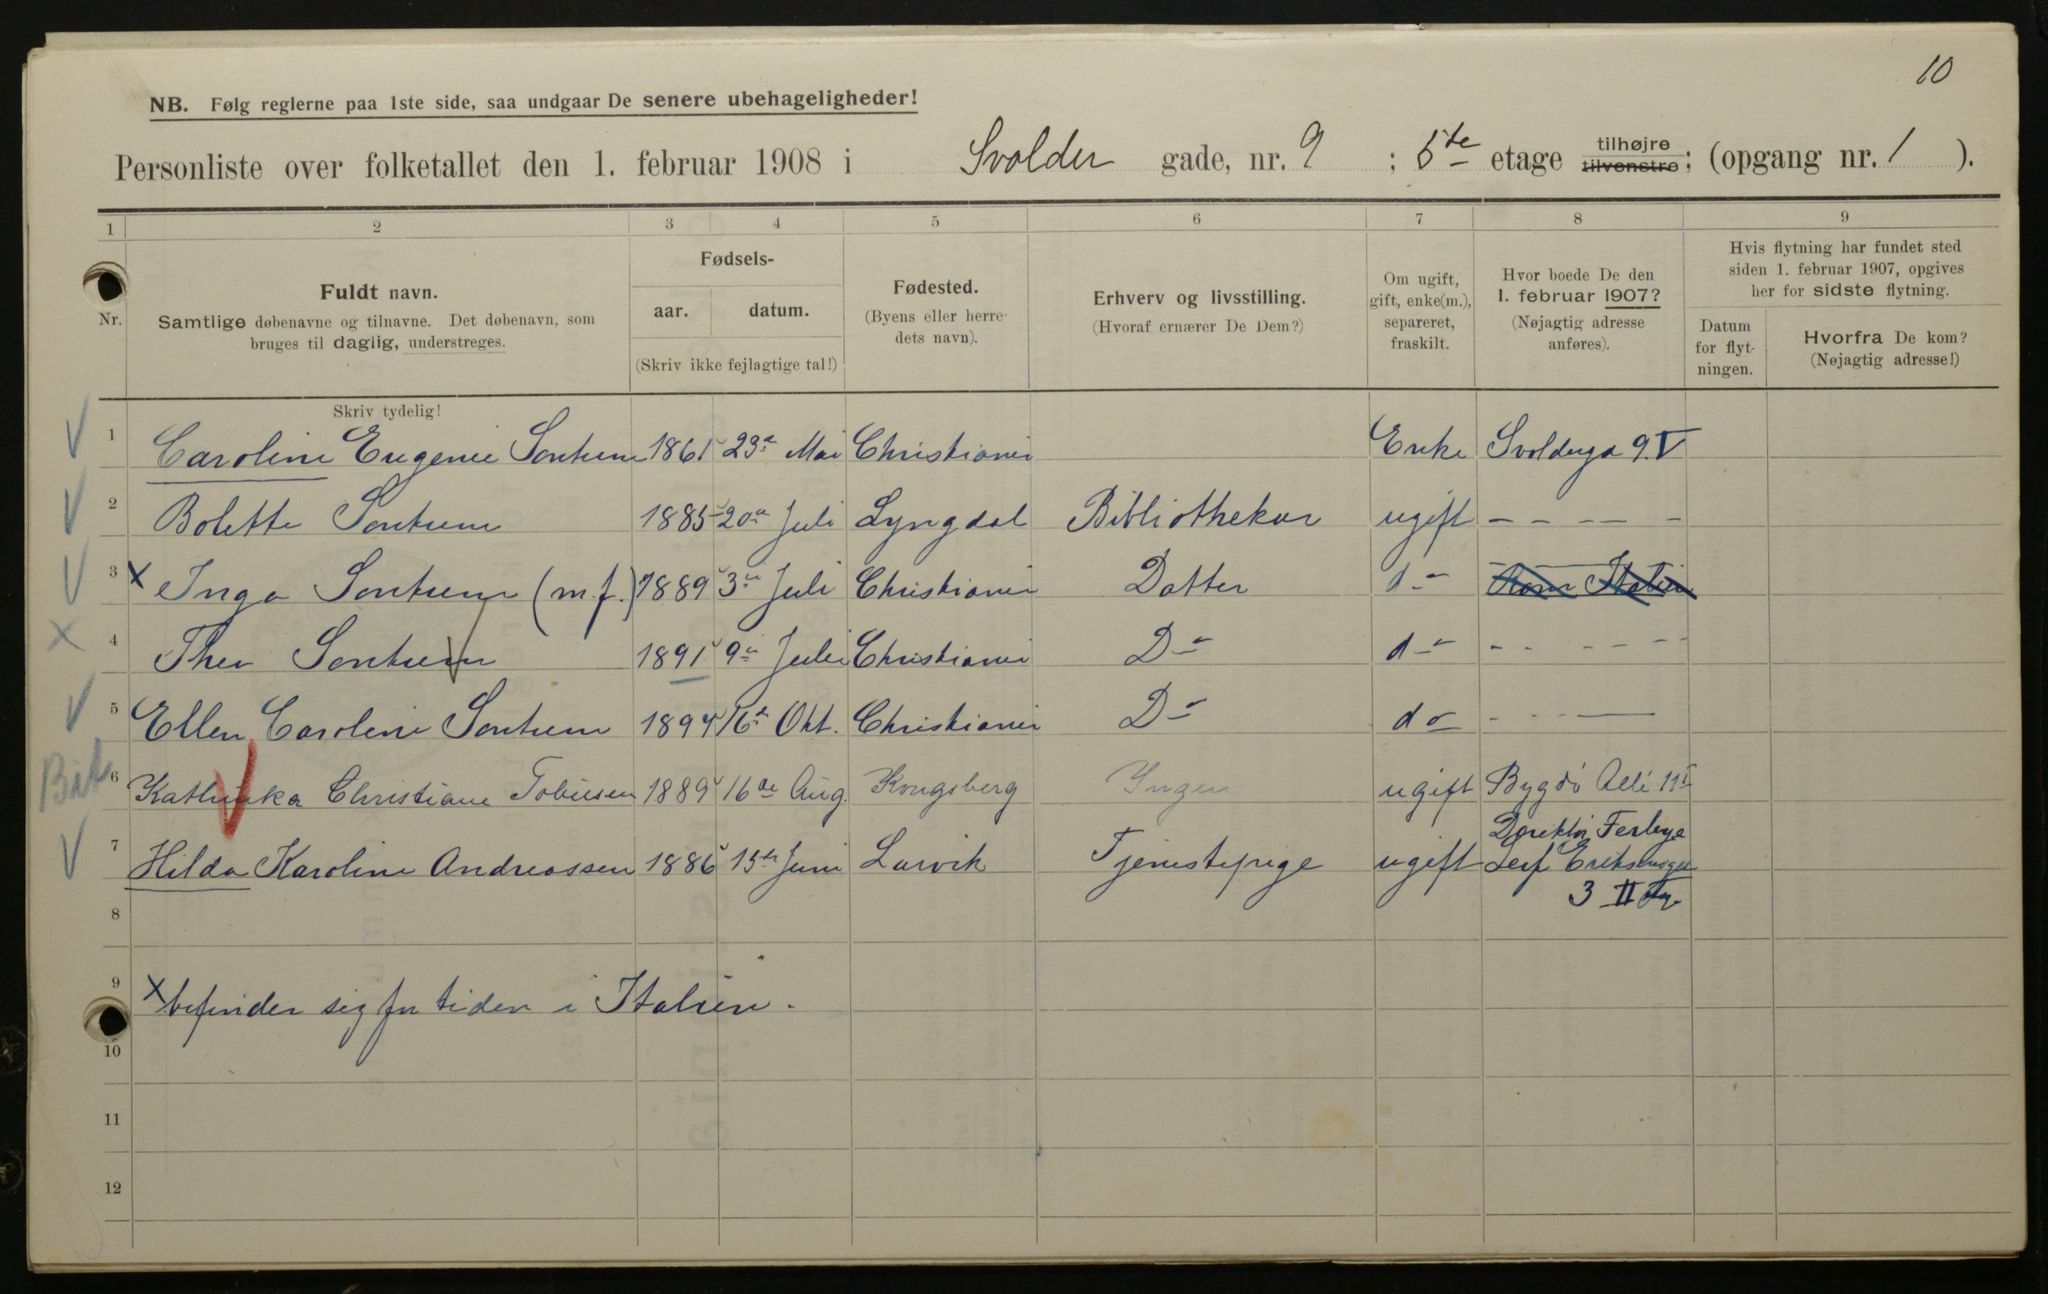 10
NB. Følg reglerne paa 1ste side, saa undgaar De senere ubehageligheder!
Personliste over folketallet den 1. februar 1908 i Svolder gade, nr. 9 ; 5te etage tilhøjre tilvenstre; (opgang nr. 1 ).
1 2 3 4 5 6 7 8 9
Nr.
Fuldt navn.
Samtlige døbenavne og tilnavne. Det døbenavn, som
bruges til daglig, understreges.
Fødsels-
aar. datum.
(Skriv ikke fejlagtige tal!)
Fødested.
(Byens eller herre-
dets navn).
Erhverv og livsstilling.
(Hvoraf ernærer De Dem?)
Om ugift,
gift, enke(m.),
separeret,
fraskilt.
Hvor boede De den
1. februar 1907?
(Nøjagtig adresse
anføres).
Hvis flytning har fundet sted
siden 1. februar 1907, opgives
her for sidste flytning.
Datum
for flyt-
ningen.
Hvorfra De kom?
(Nøjagtig adresse!)
Skriv tydelig!
1 Caroline Eugenie Sontum 1861 23de Mai Christiania Enke Svolderga 9.V
2 Bolette Sontum 1885 20de Juli Lyngdal Bibliothekar ugift - - - - -
3 x Inga Sontum (m.f.) 1889 3de Juli Christiania Datter do Rom Italien
4 Thea Sontum 1891 9de Juli Christiania Do do - - - - - -
5 Ellen Caroline Sontum 1894 16de Okt. Christiania Do do - - - —
6 Kathinka Christiane Tobiesen 1889 16de Aug. Kongsberg Ingen ugift Bygdö Allé 11I
Direktör Ferlige
7 Hilda Karoline Andreassen 1886 15de Juni Larvik Tjenestepige ugift Leif Eriksensga
3 II
8
9 x befinder sig for tiden i Italien.
10
11
12